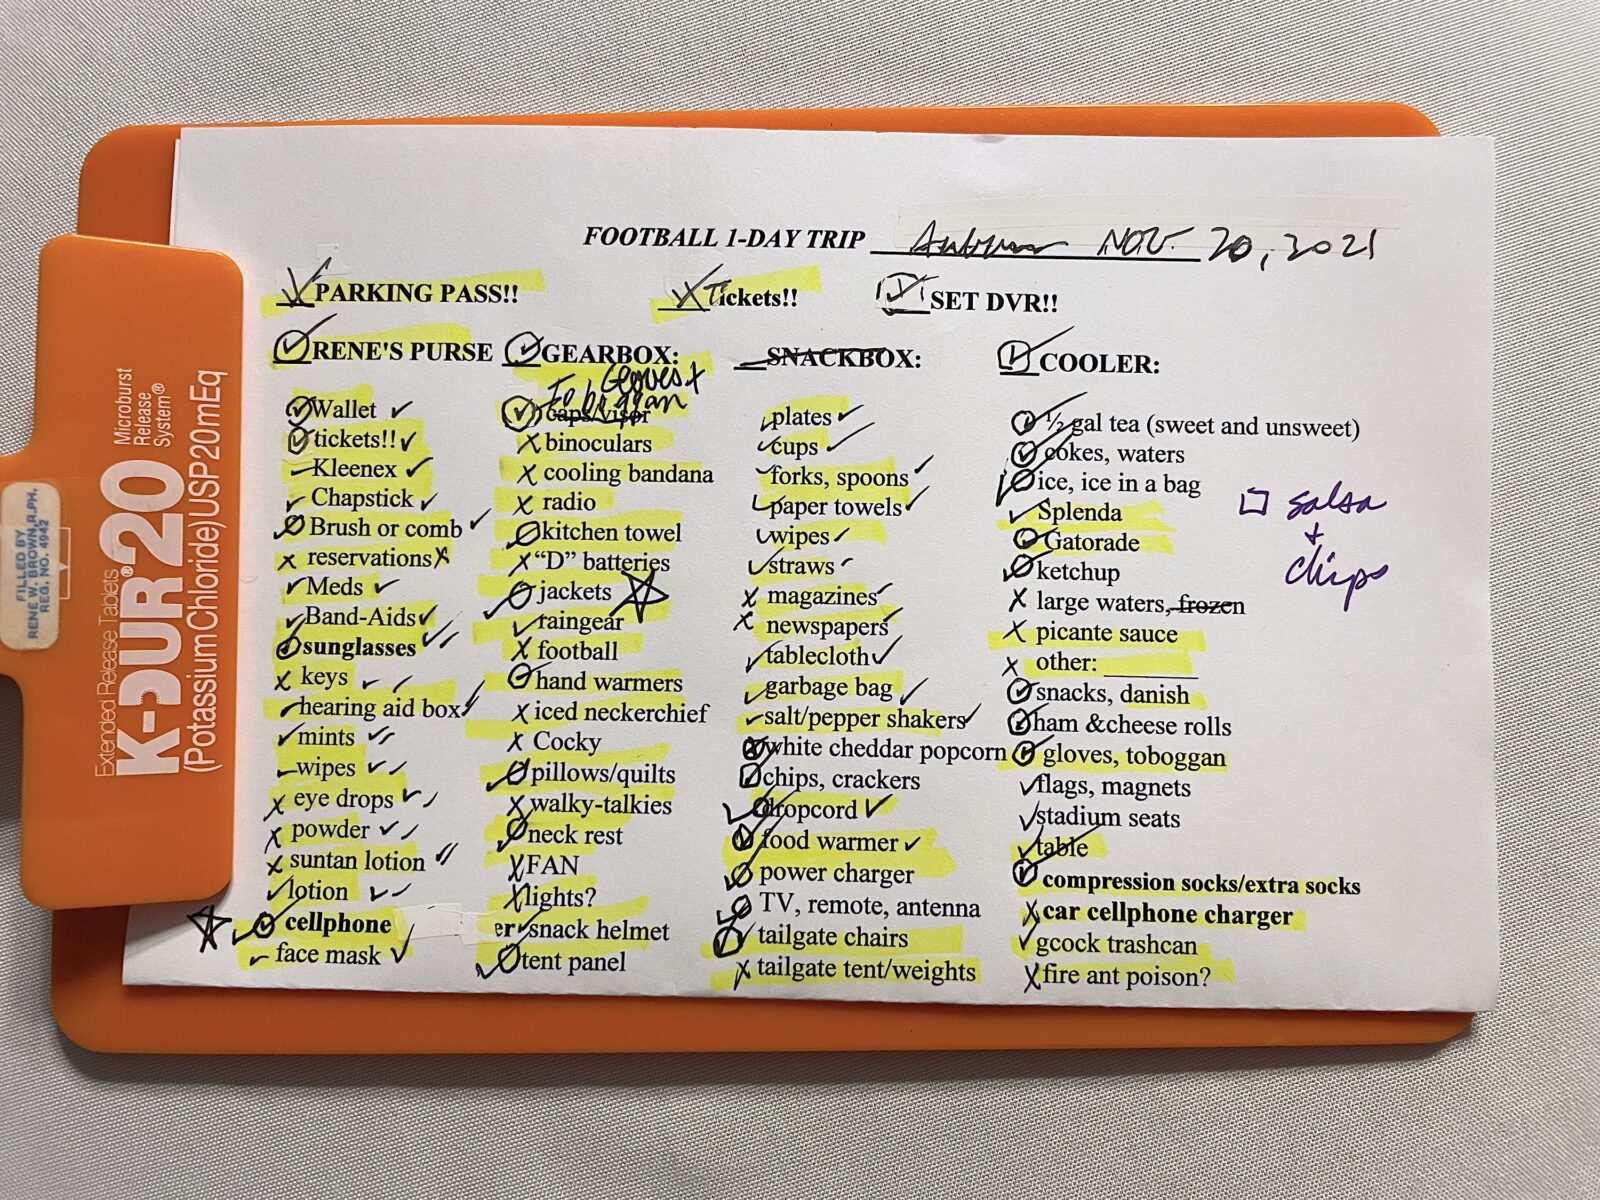 FOOTBALL 1-DAY TRIP Auburn NOV. 20, 2021
PARKING PASS!!
Tickets!!
SET DVR!!
RENE'S PURSE
Wallet
tickets!!
Kleenex
Chapstick
Brush or comb
reservations
Meds
Band-Aids
sunglasses
keys
hearing aid box
mints
wipes
eye drops
powder
suntan lotion
lotion
cellphone
face mask
GEARBOX:
Gloves +
Toboggan
caps/visor
binoculars
cooling bandana
radio
kitchen towel
"D" batteries
jackets
raingear
football
hand warmers
iced neckerchief
Cocky
pillows/quilts
walky-talkies
neck rest
FAN
lights?
er snack helmet
tent panel
SNACKBOX:
plates
cups
forks, spoons
paper towels
wipes
straws
magazines
newspapers
tablecloth
garbage bag
salt/pepper shakers
white cheddar popcorn
chips, crackers
dropcord
food warmer
power charger
TV, remote, antenna
tailgate chairs
tailgate tent/weights
COOLER:
½ gal tea (sweet and unsweet)
cokes, waters
ice, ice in a bag
Splenda
Gatorade
ketchup
large waters, frozen
picante sauce
other:
snacks, danish
ham &cheese rolls
gloves, toboggan
flags, magnets
stadium seats
table
compression socks/extra socks
car cellphone charger
gcock trashcan
fire ant poison?
salsa
+
chips
K-DUR® 20
Microburst
Release
System®
Extended Release Tablets
(Potassium Chloride) USP 20mEq
FILLED BY
RENE W. BROWN, R.PH.
REG. NO. 4942